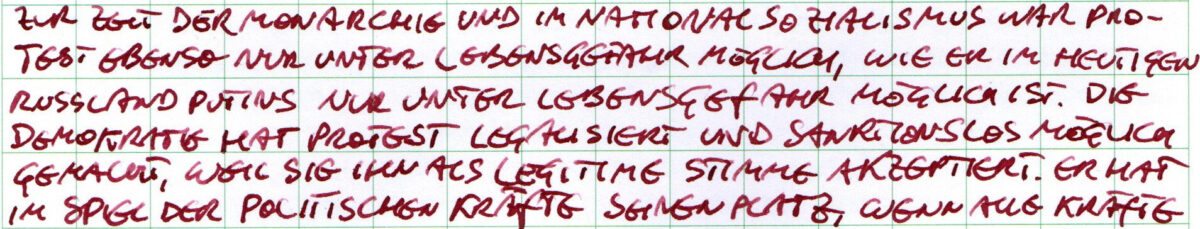 ZUR ZEIT DER MONARCHIE UND IM NATIONALSOZIALISMUS WAR PRO-
TEST EBENSO NUR UNTER LEBENSGEFAHR MÖGLICH, WIE ER IM HEUTIGEN
RUSSLAND PUTINS NUR UNTER LEBENSGEFAHR MÖGLICH IST. DIE
DEMOKRATIE HAT PROTEST LEGALISIERT UND SANKTIONSLOS MÖGLICH
GEMACHT, WEIL SIE IHN ALS LEGITIME STIMME AKZEPTIERT. ER HAT
IM SPIEL DER POLITISCHEN KRÄFTE SEINEN PLATZ, WENN ALLE KRÄFTE